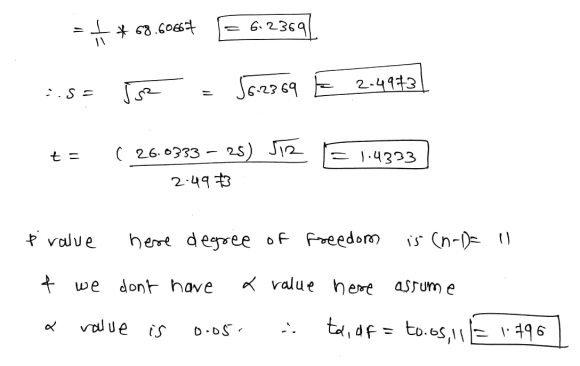 = 1/11 * 68.60667 = 6.2369
∴ s = √s² = √6.2369 = 2.4973
t = (26.0333 - 25) √12 / 2.4973 = 1.4333
P value here degree of freedom is (n-1)= 11
& we dont have α value here assume
α value is 0.05. ∴ tα, df = t0.05,11 = 1.796